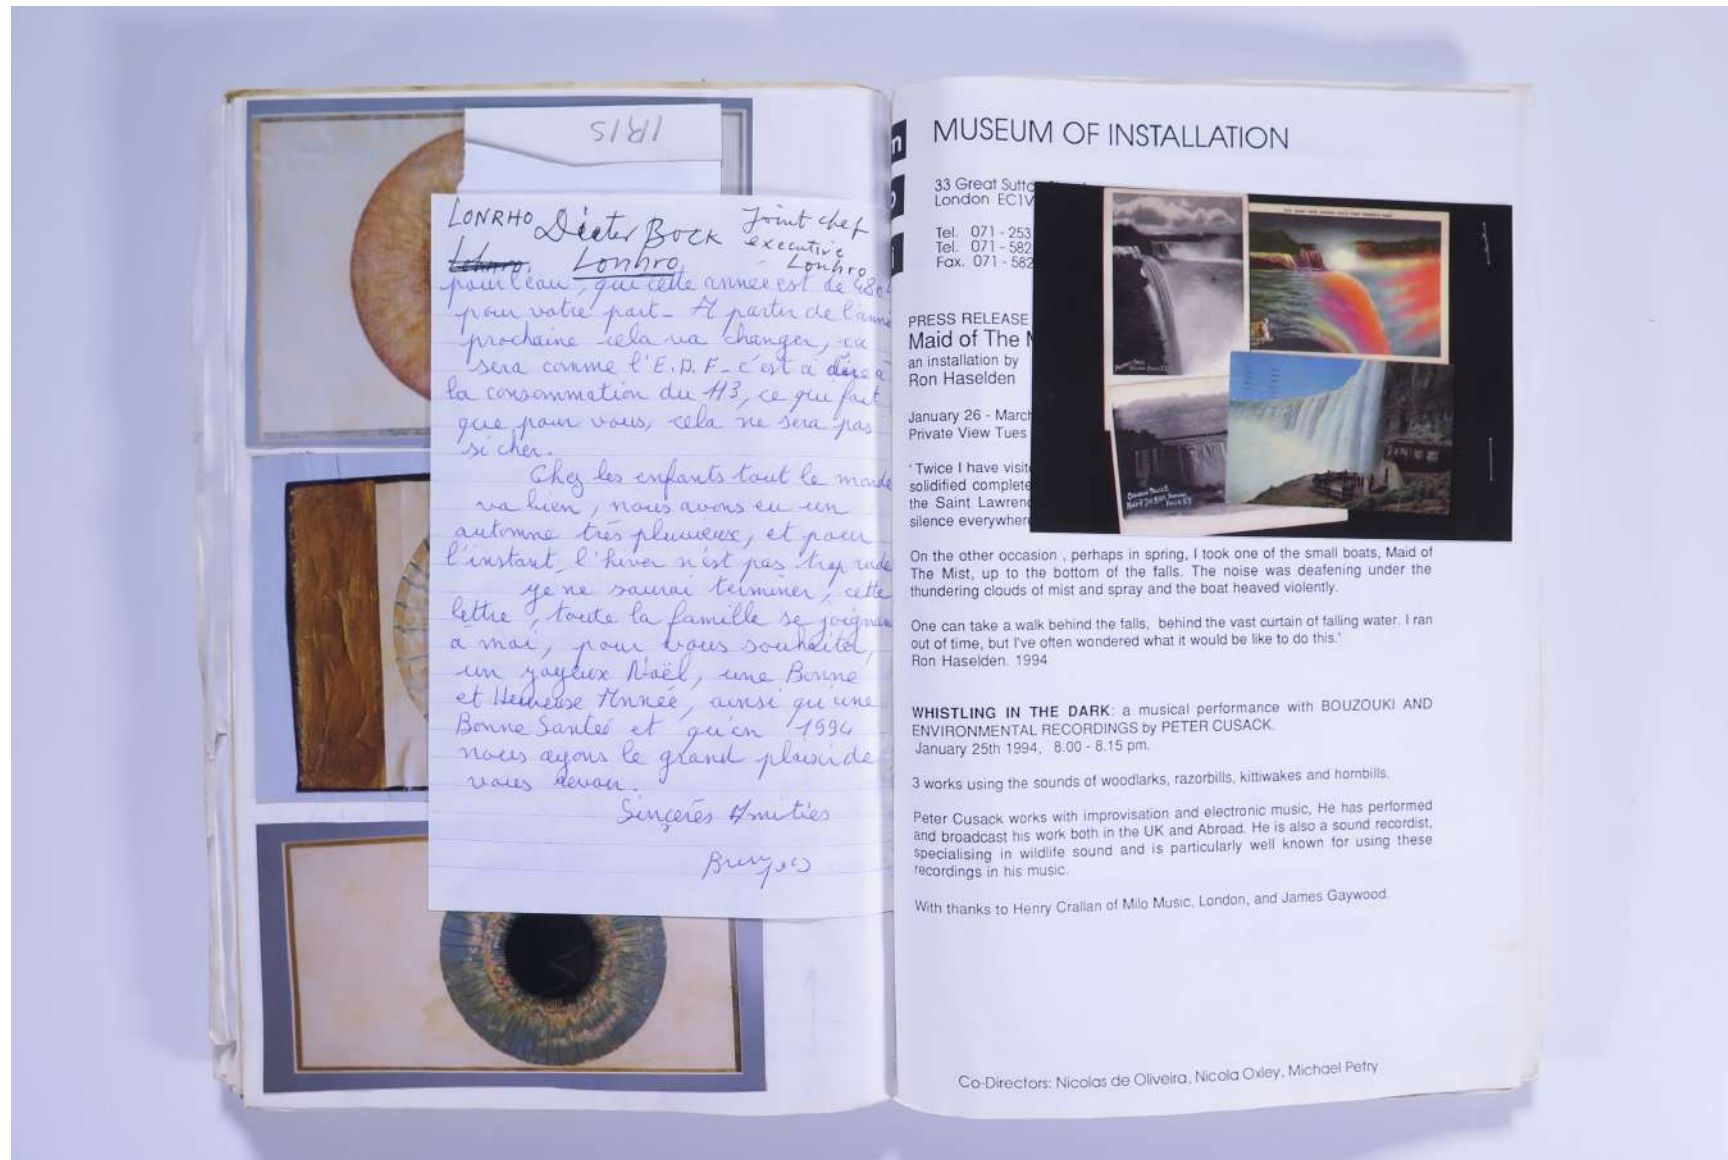 IRIS
LONRHO Dieter Bock Joint chef
executive
Lonhro Lonhro
pour l'eau, qui cette année est de 480
pour votre part - A partir de l'anné
prochaine cela va changer, ce
sera comme l'E.D.F - c'est à dire à
la consommation du M3, ce qui fait
que pour vous, cela ne sera pas
si cher.
Chez les enfants tout le monde
va bien, nous avons eu un
automne très pluvieux, et pour
l'instant, l'hiver n'est pas trop rude
Je ne saurai terminer, cette
lettre, toute la famille se joignan
à moi, pour vous souhaiter,
un joyeux Noël, une Bonne
et Heureuse Année, ainsi qu'une
Bonne Santé et qu'en 1994
nous ayons le grand plaisir de
vous revoir.
Sincères Amitiés
m
o
i
MUSEUM OF INSTALLATION
33 Great Sutto
London EC1V
Tel. 071 - 253
Tel. 071 - 582
Fax. 071 - 582
PRESS RELEASE
Maid of The M
an installation by
Ron Haselden
January 26 - March
Private View Tues
'Twice I have visit
solidified complete
the Saint Lawrenc
silence everywher
On the other occasion , perhaps in spring, I took one of the small boats, Maid of
The Mist, up to the bottom of the falls. The noise was deafening under the
thundering clouds of mist and spray and the boat heaved violently.
One can take a walk behind the falls, behind the vast curtain of falling water. I ran
out of time, but I've often wondered what it would be like to do this.'
Ron Haselden. 1994
WHISTLING IN THE DARK: a musical performance with BOUZOUKI AND
ENVIRONMENTAL RECORDINGS by PETER CUSACK.
January 25th 1994, 8.00 - 8.15 pm.
3 works using the sounds of woodlarks, razorbills, kittiwakes and hornbills.
Peter Cusack works with improvisation and electronic music, He has performed
and broadcast his work both in the UK and Abroad. He is also a sound recordist,
specialising in wildlife sound and is particularly well known for using these
recordings in his music.
With thanks to Henry Crallan of Milo Music, London, and James Gaywood.
Co-Directors: Nicolas de Oliveira, Nicola Oxley, Michael Petry